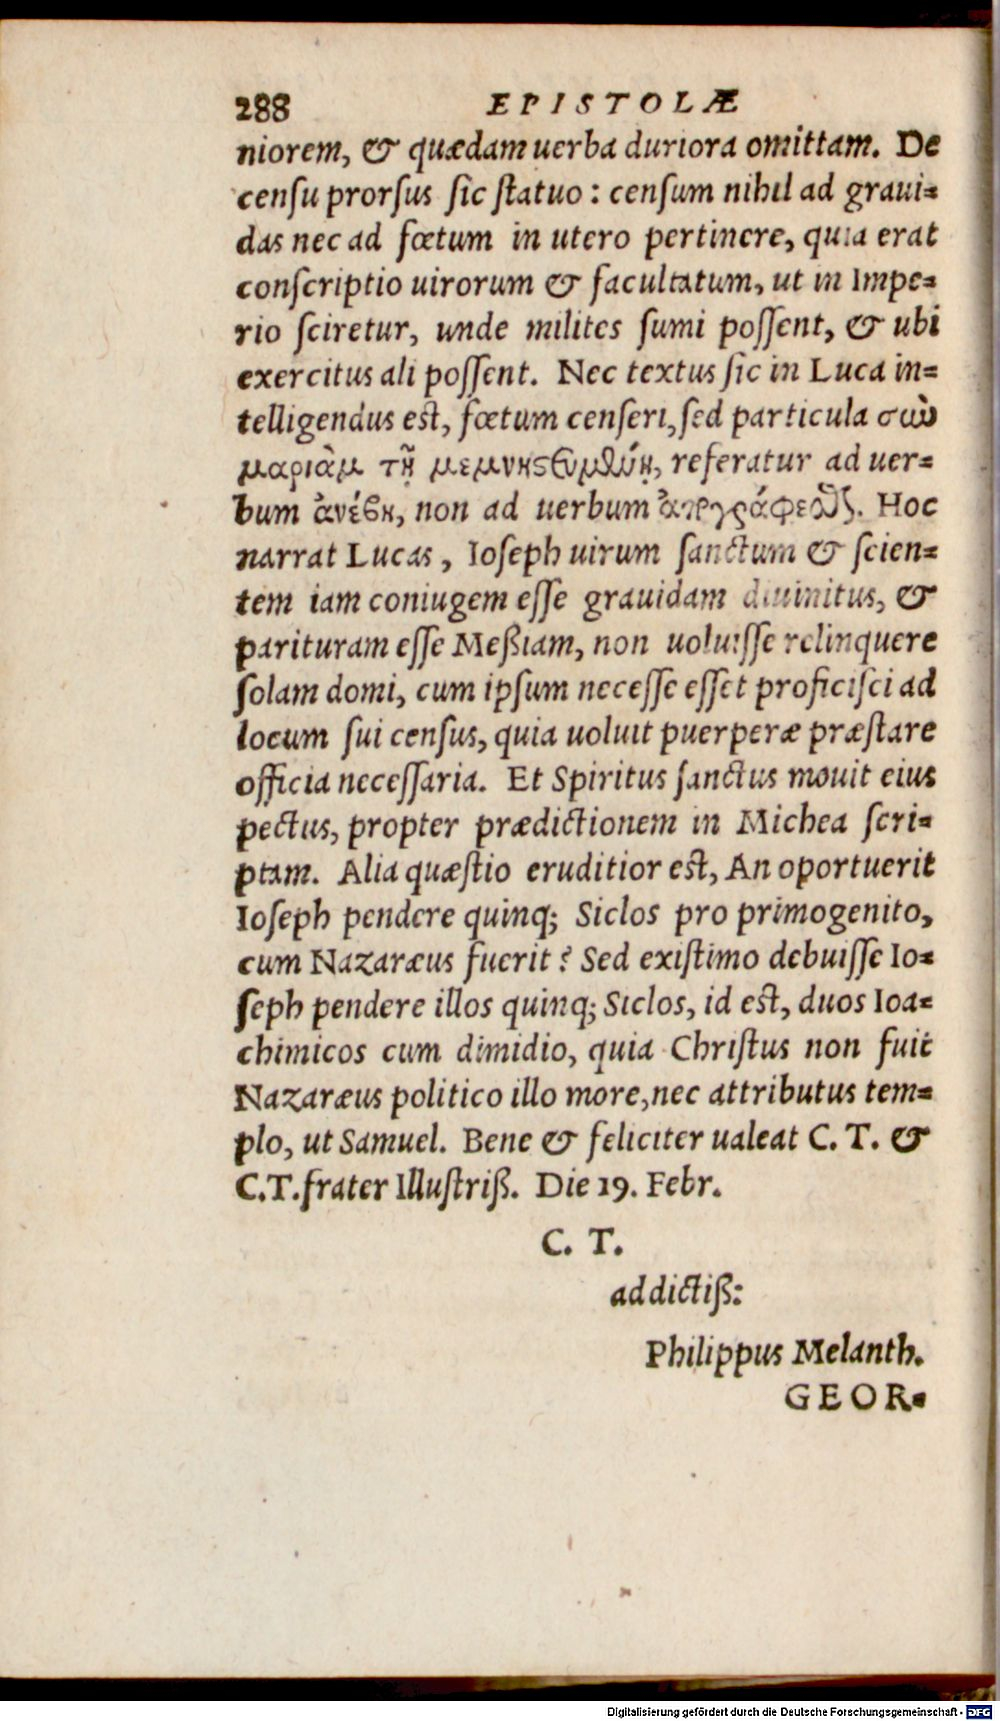 288 EPISTOLÆ
niorem, & quædam uerba duriora omittam. De
censu prorsus sic statuo: censum nihil ad graui=
das nec ad fœtum in utero pertinere, quia erat
conscriptio uirorum & facultatum, ut in Impe=
rio sciretur, unde milites sumi possent, & ubi
exercitus ali possent. Nec textus sic in Luca in=
telligendus est, fœtum censeri, sed particula σὺν
μαριὰμ τῇ μεμνηστευμένῃ, referatur ad uer=
bum ἀνέβη, non ad uerbum ἀπογράφεσθαι. Hoc
narrat Lucas, Ioseph uirum sanctum & scien=
tem iam coniugem esse grauidam diuinitus, &
parituram esse Meßiam, non uoluisse relinquere
solam domi, cum ipsum necesse esset proficisci ad
locum sui census, quia uoluit puerperæ præstare
officia necessaria. Et Spiritus sanctus mouit eius
pectus, propter prædictionem in Michea scri=
ptam. Alia quæstio eruditior est, An oportuerit
Ioseph pendere quinq; Siclos pro primogenito,
cum Nazaræus fuerit? Sed existimo debuisse Io=
seph pendere illos quinq; Siclos, id est, duos Ioa=
chimicos cum dimidio, quia Christus non fuit
Nazaræus politico illo more, nec attributus tem=
plo, ut Samuel. Bene & feliciter ualeat C. T. &
C.T. frater Illustriß. Die 19. Febr.
C. T.
addictiß:
Philippus Melanth.
GEOR=
Digitalisierung gefördert durch die Deutsche Forschungsgemeinschaft - DFG